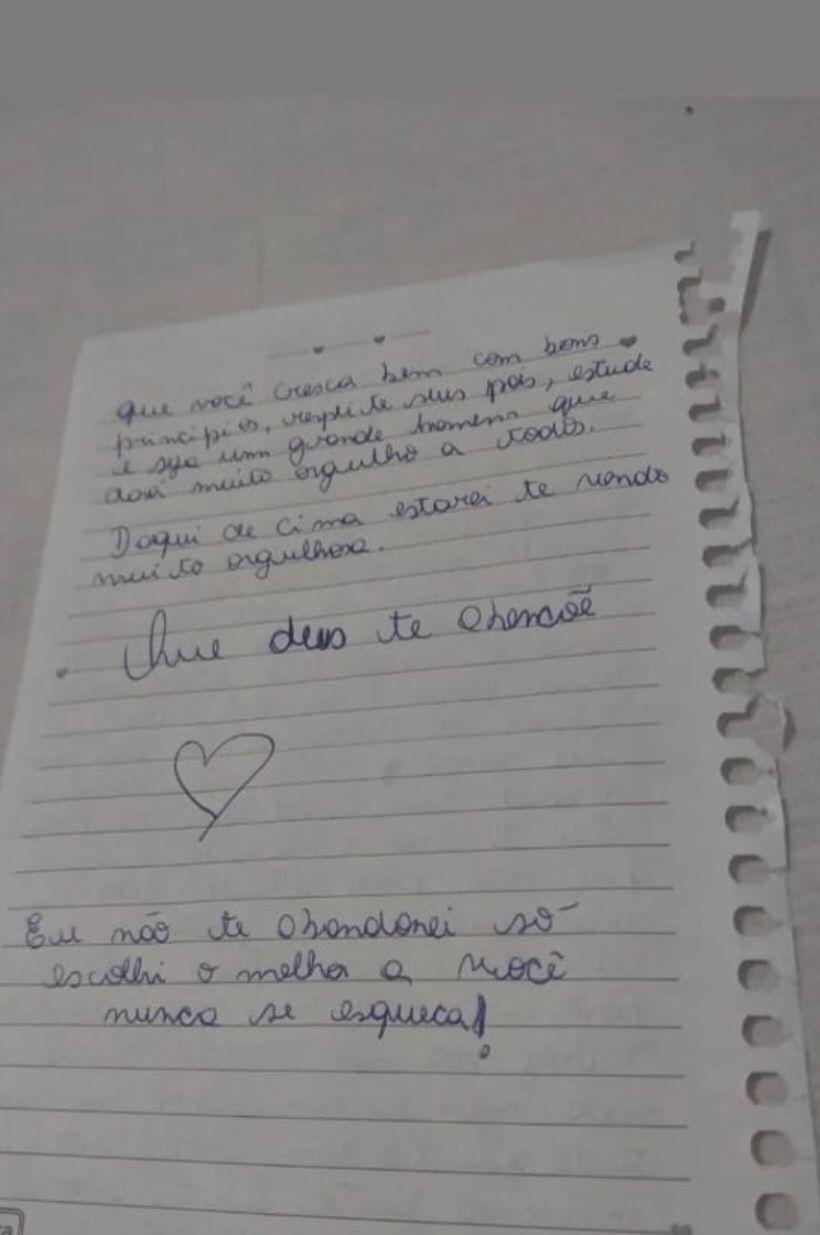 que você cresca bem com bens
principios, respeite seus pais, estude
e seja um grande homens que
dará muito orgulho a todos.
Daqui de cima estarei te vendo
muito orgulhosa.
Que deus te abencoē
Eu não te abandonei só
escolhi o melho a você
nunca se esqueca!